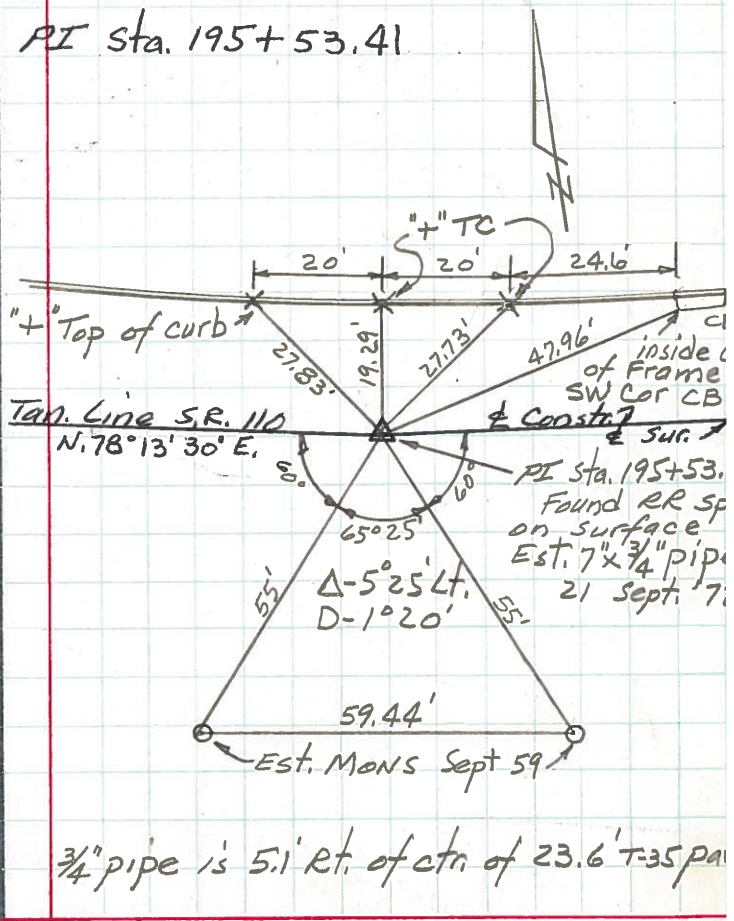 PI Sta. 195+53.41
N
"+" TC
20'
20'
24.6'
"+" Top of curb
27.83'
19.29'
27.73'
47.96'
inside
of Frame
SW Cor CB
Tan. Line S.R. 110
℄ Constr.
N. 78° 13' 30" E.
℄ Sur.
60°
60°
65° 25'
PI Sta. 195+53.
Found RR
on surface
Est. 7" x 3/4" pipe
21 Sept.
55'
55'
Δ-5° 25' Lt.
D-1° 20'
59.44'
Est. Mons Sept 59
3/4" pipe is 5.1' Rt. of ctr. of 23.6' T-35